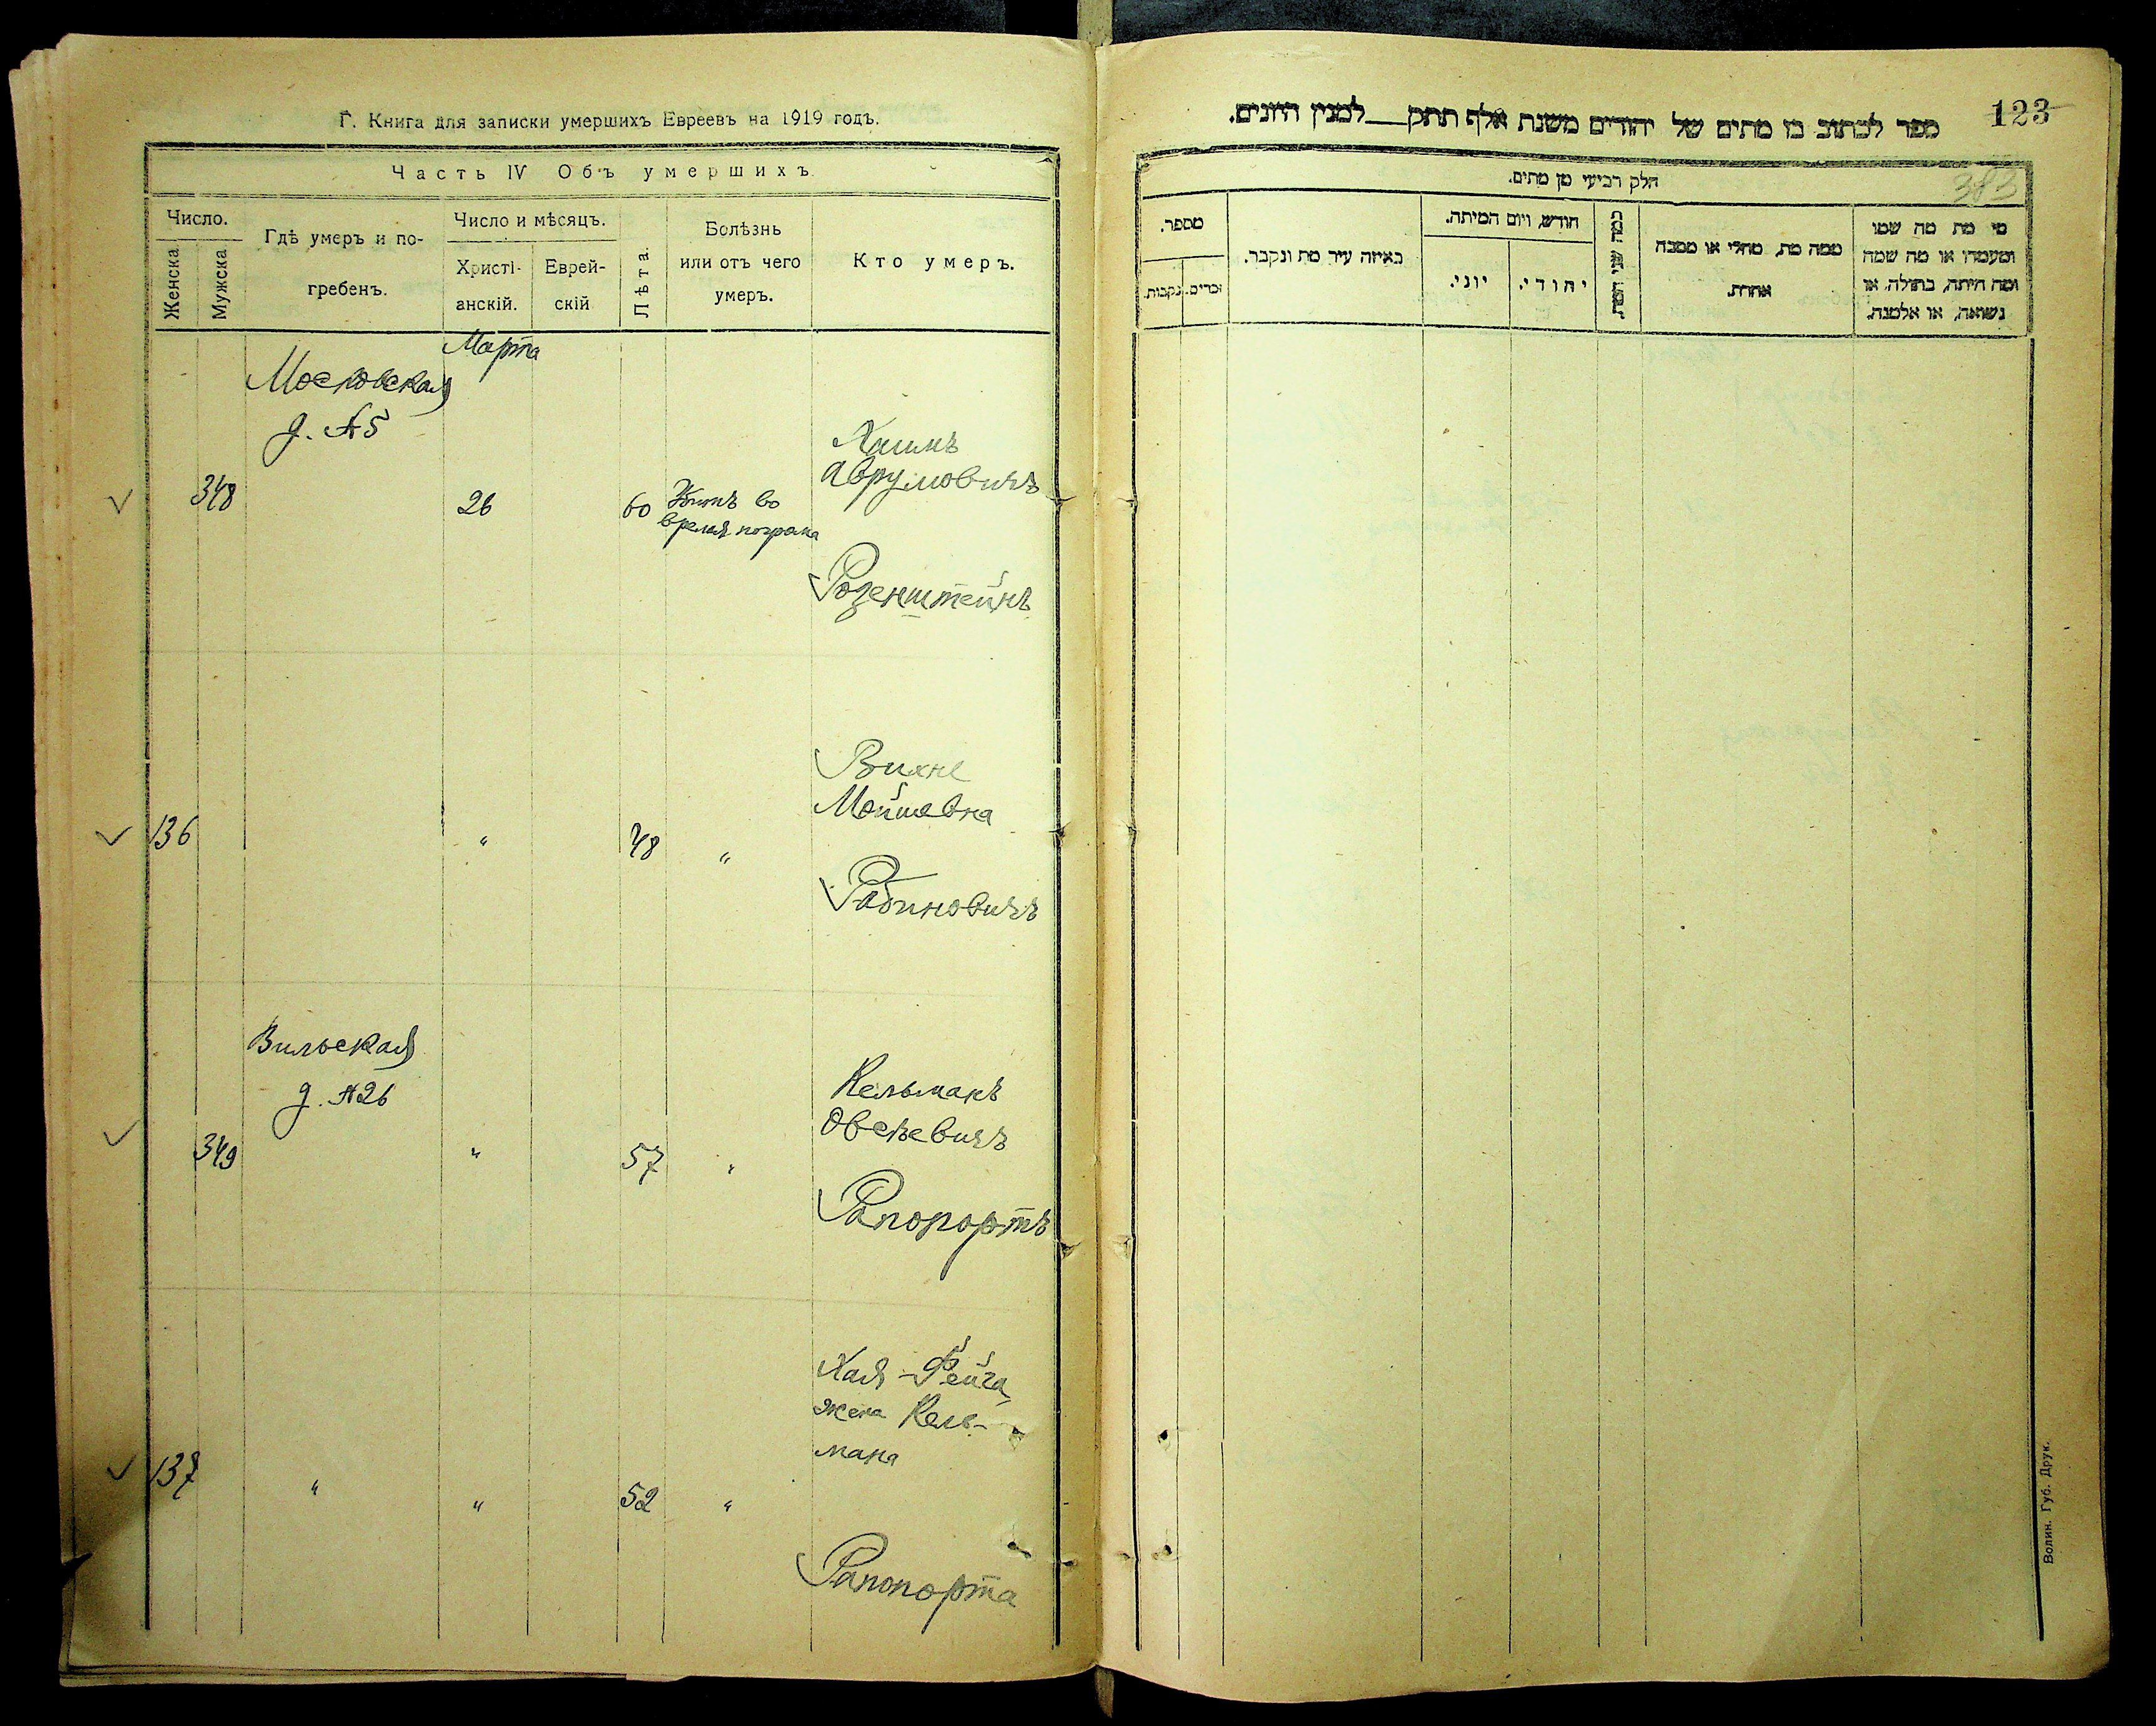 Г. Книга для записки умершихъ Евреевъ на 1919 годъ.
Часть IV Объ умершихъ
Число.
Женска
Мужска
Гдѣ умеръ и по-
гребенъ.
Число и мѣсяцъ.
Христі-
анскій.
Еврей-
скій
Лѣта.
Болѣзнь
или отъ чего
умеръ.
Кто умеръ.
Марта
Московская
д. №5
348
26
60
Убитъ во
время погрома
Хаимъ
Аврумовичъ
Розенштейнъ
136
"
48
"
Вихне
Мойшевна
Рабиновичъ
Вильская
д. №26
349
"
57
"
Кельманъ
Овсѣевичъ
Рапопортъ
137
"
"
52
"
Хая-Фейга
жена Кель-
мана
Рапопорта
123
ספר לכתוב בו מתים של יהודים משנת אלף תתק__למנין היונים.
383
חלק רביעי מן מתים.
מספר.
נקבות.
זכרים.
באיזה עיר מת ונקבר.
חודש, ויום המיתה.
יוני.
יהודי.
כמה שני המת.
ממה מת, מחלי או ממכה
אחרת.
מי מת מה שמו
ומעמדו או מה שמה
ומה היתה, בתולה או
נשואה, או אלמנה.
Волин. Губ. Друк.